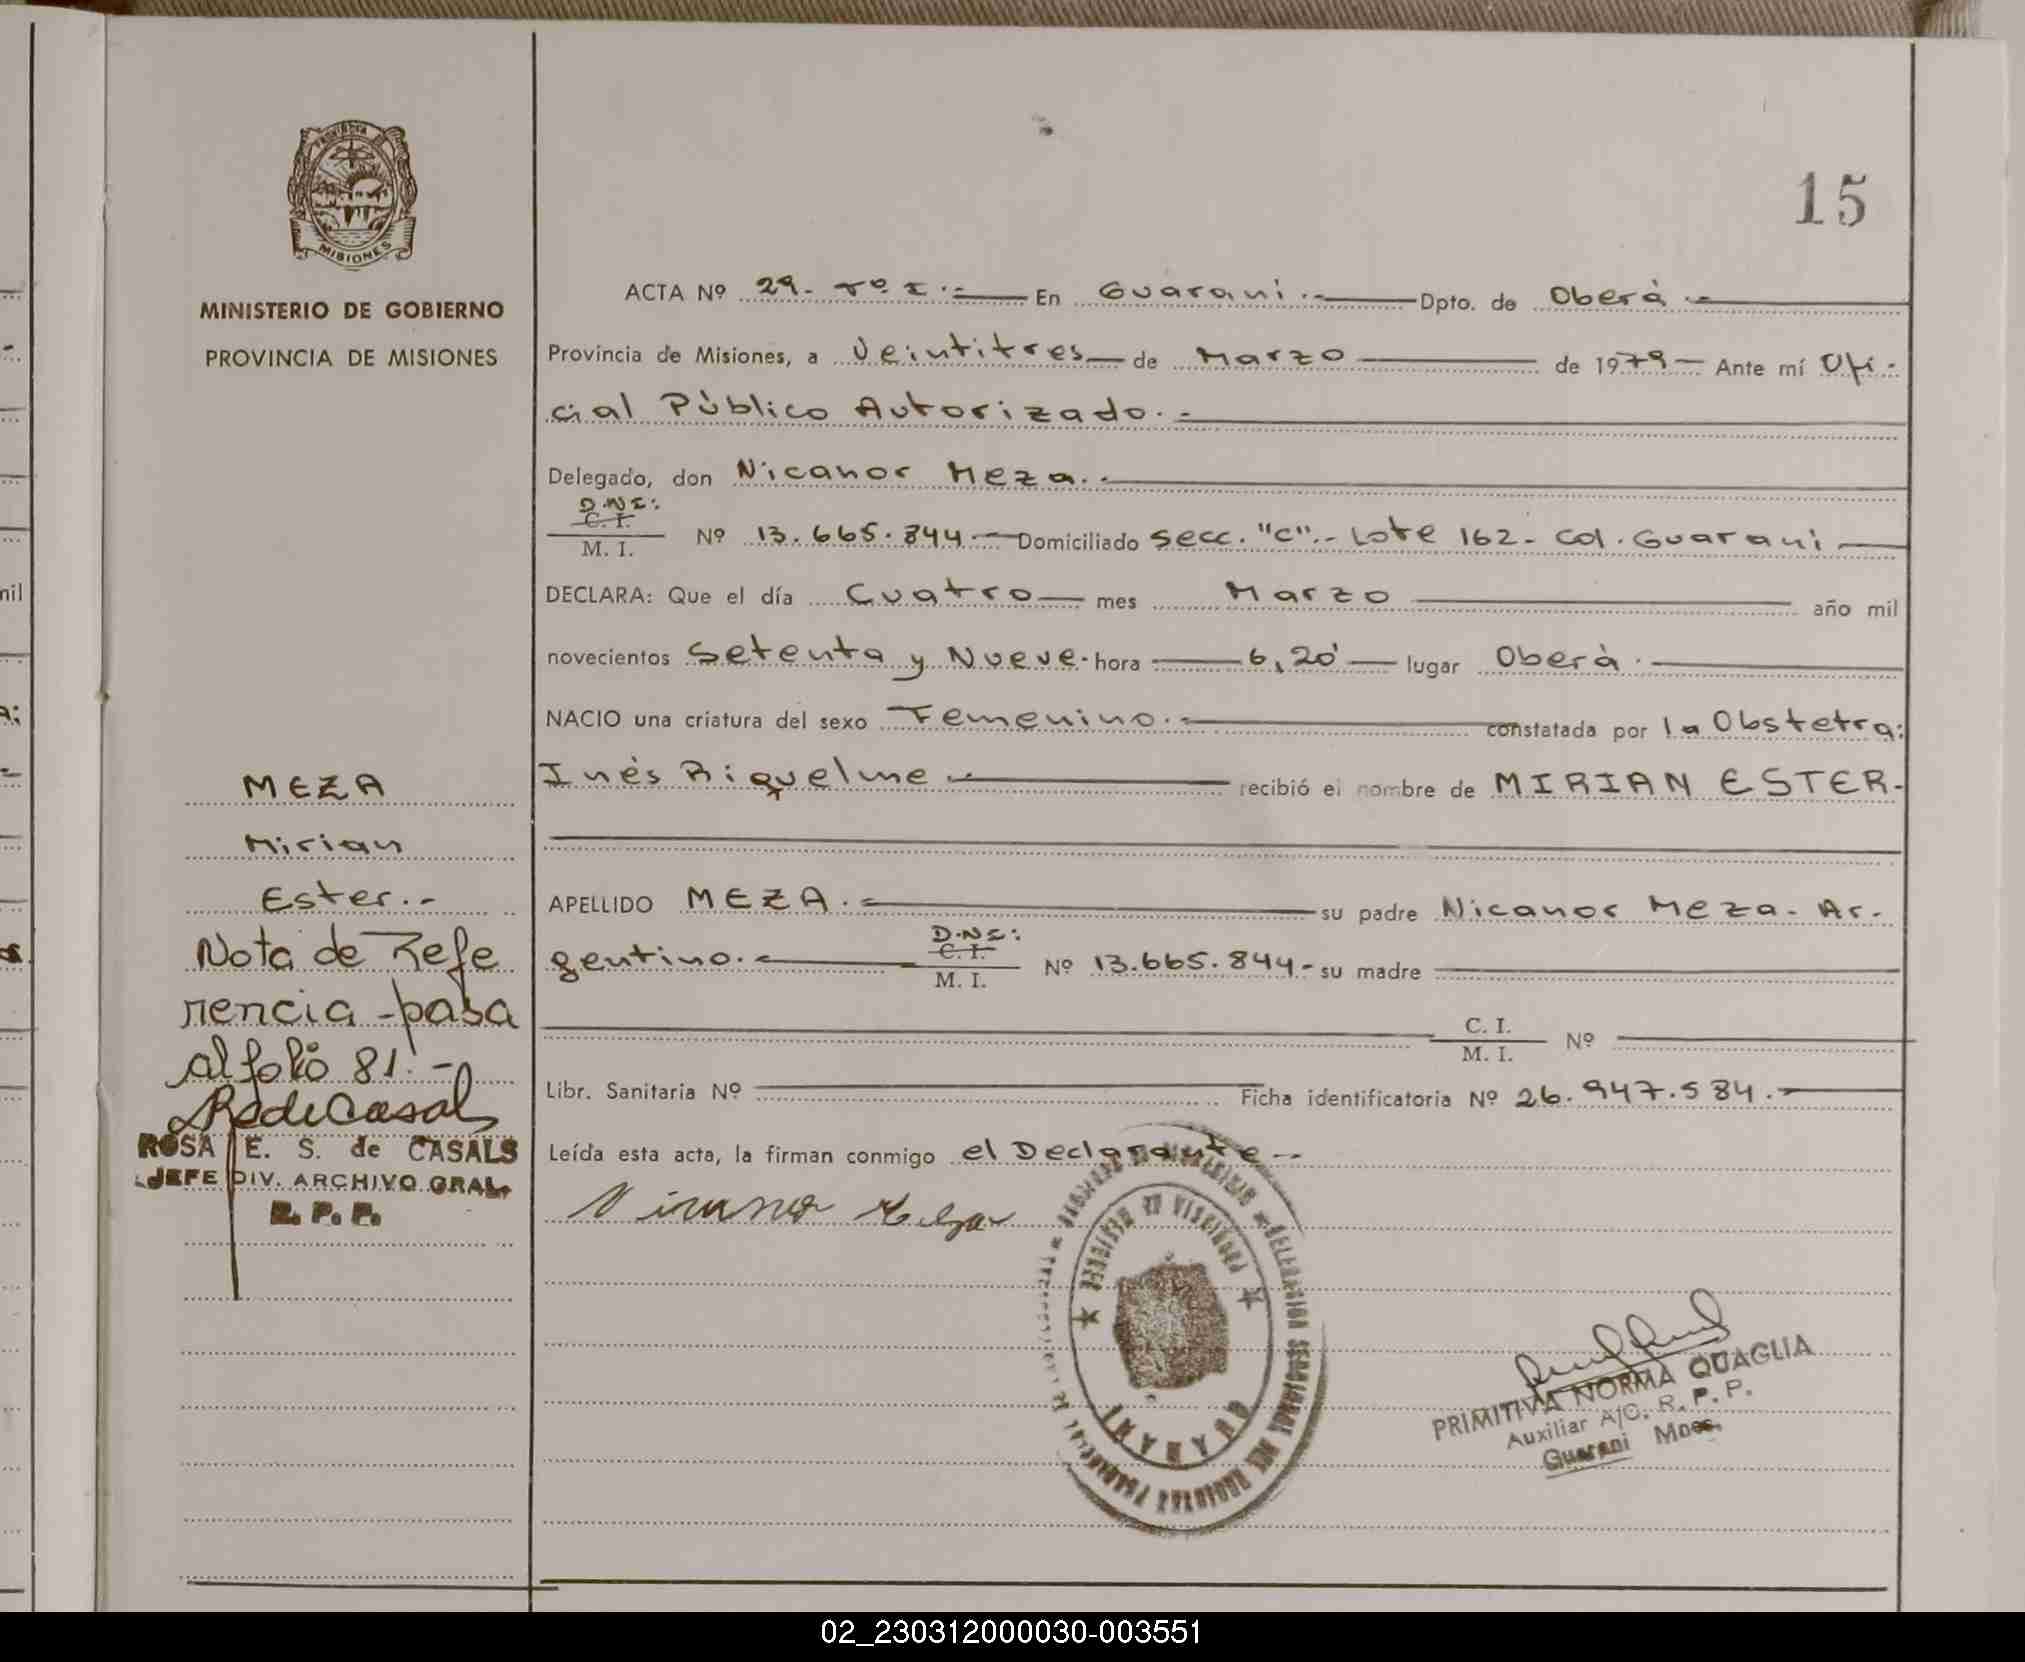 15
MISIONES
MINISTERIO DE GOBIERNO
PROVINCIA DE MISIONES
ACTA Nº 29. Tº I.- En Guarani.- Dpto. de Oberá.-
Provincia de Misiones, a Veintitres de Marzo de 1979 Ante mí Ofi-
cial Público Autorizado.-
Delegado, don Nicanor Meza.-
D.N.I:
C. I.
M. I. Nº 13.665.844.- Domiciliado Secc. "C".- Lote 162- Col. Guarani
DECLARA: Que el día Cuatro mes Marzo año mil
novecientos Setenta y Nueve. hora 6,20' lugar Oberá.
NACIO una criatura del sexo Femenino.- constatada por la Obstetra:
Inés Riquelme recibió el nombre de MIRIAN ESTER.
APELLIDO MEZA.- su padre Nicanor Meza- Ar-
gentino.- D.N.I: C. I. M. I. Nº 13.665.844.- su madre
C. I.
M. I. Nº
Libr. Sanitaria Nº Ficha identificatoria Nº 26.947.584.-
Leída esta acta, la firman conmigo el Declarante.-
MEZA
Mirian
Ester.-
Nota de Refe
rencia - pasa
al folio 81.-
ROSA E. S. de CASALS
JEFE DIV. ARCHIVO GRAL.
R. P. P.
GUARANI
PRIMITIVA NORMA QUAGLIA
Auxiliar A/C. R. P. P.
Guarani Mnes.
mil
02_230312000030-003551